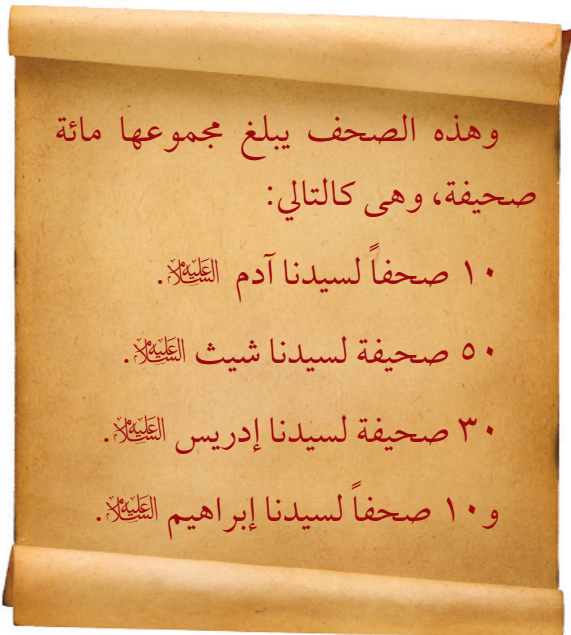 وهذه الصحف يبلغ مجموعها مائة
صحيفة، وهى كالتالي:
١٠ صحفاً لسيدنا آدم عليه السلام.
٥٠ صحيفة لسيدنا شيث عليه السلام.
٣٠ صحيفة لسيدنا إدريس عليه السلام.
و١٠ صحفاً لسيدنا إبراهيم عليه السلام.